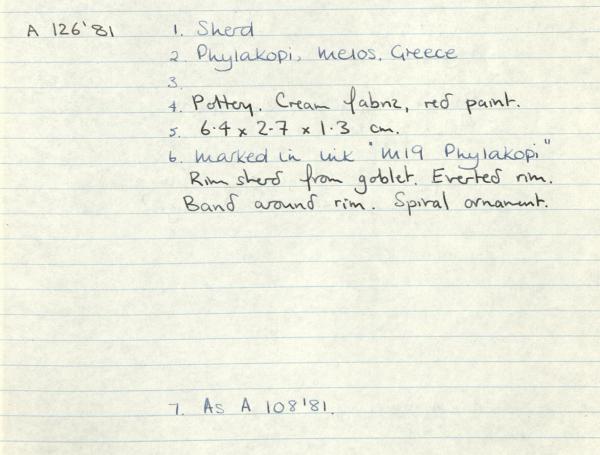 A 126'81 1. Sherd
2. Phylakopi, Melos, Greece
3.
4. Pottery. Cream fabric, red paint.
5. 6.4 x 2.7 x 1.3 cm.
6. Marked in ink "M19 Phylakopi"
Rim sherd from goblet. Everted rim.
Band around rim. Spiral ornament.
7. As A 108'81.